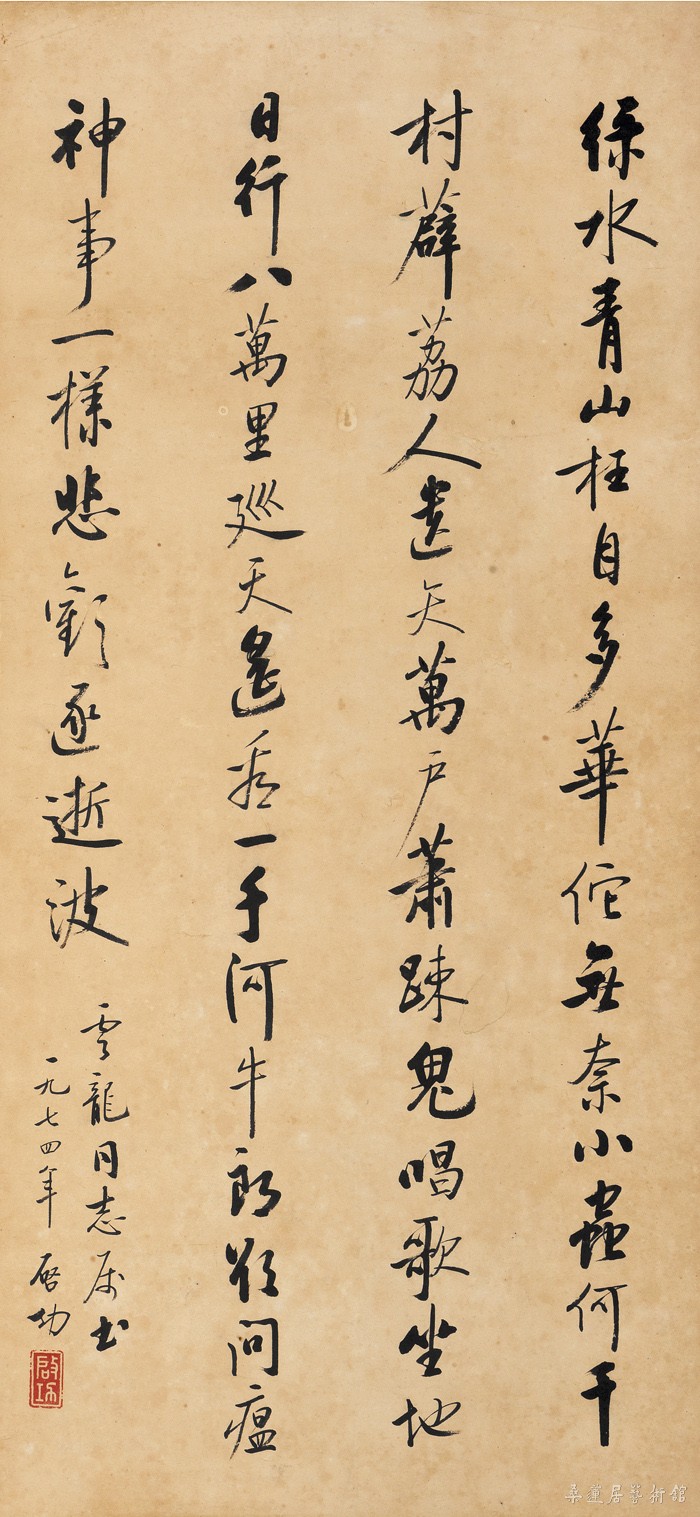 綠水青山枉自多華佗無奈小蟲何千
村薜荔人遺矢萬戶蕭疎鬼唱歌坐地
日行八萬里巡天遙看一千河牛郎欲問瘟
神事一樣悲歡逐逝波
雲龍同志屬書
一九七四年 啟功
啟功
桑蓮居藝術館